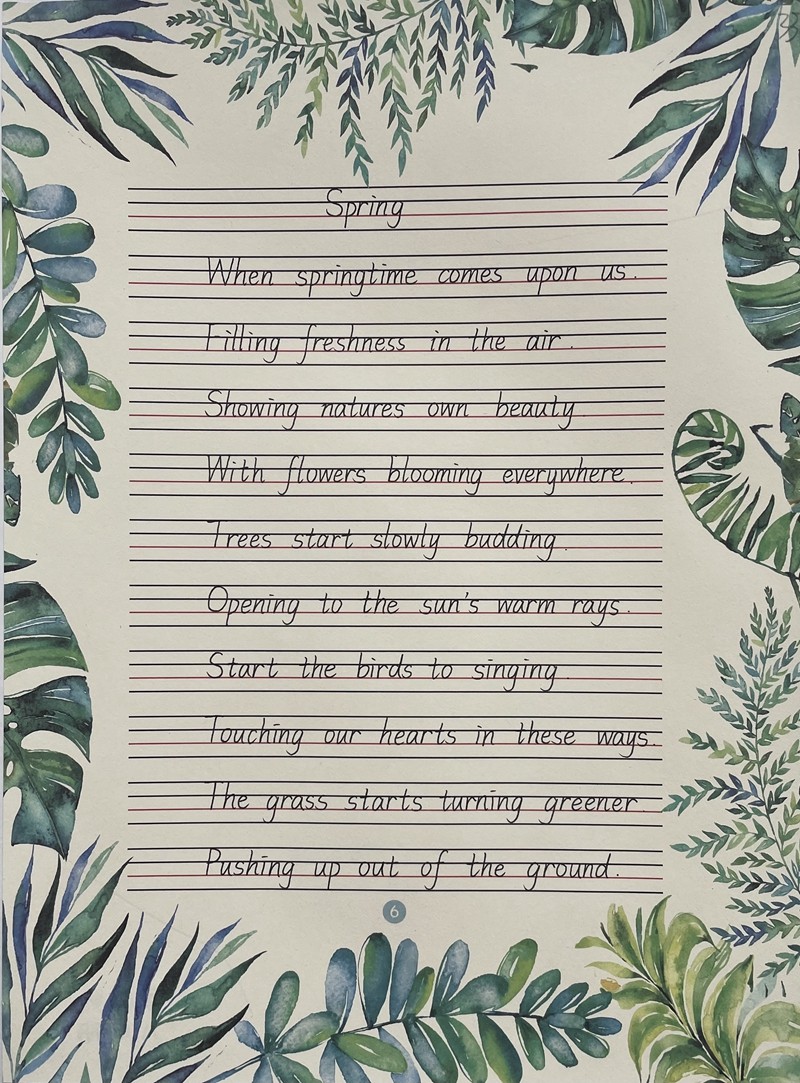 Spring
When springtime comes upon us.
Filling freshness in the air.
Showing natures own beauty
With flowers blooming everywhere.
Trees start slowly budding.
Opening to the sun's warm rays.
Start the birds to singing.
Touching our hearts in these ways.
The grass starts turning greener.
Pushing up out of the ground.
6